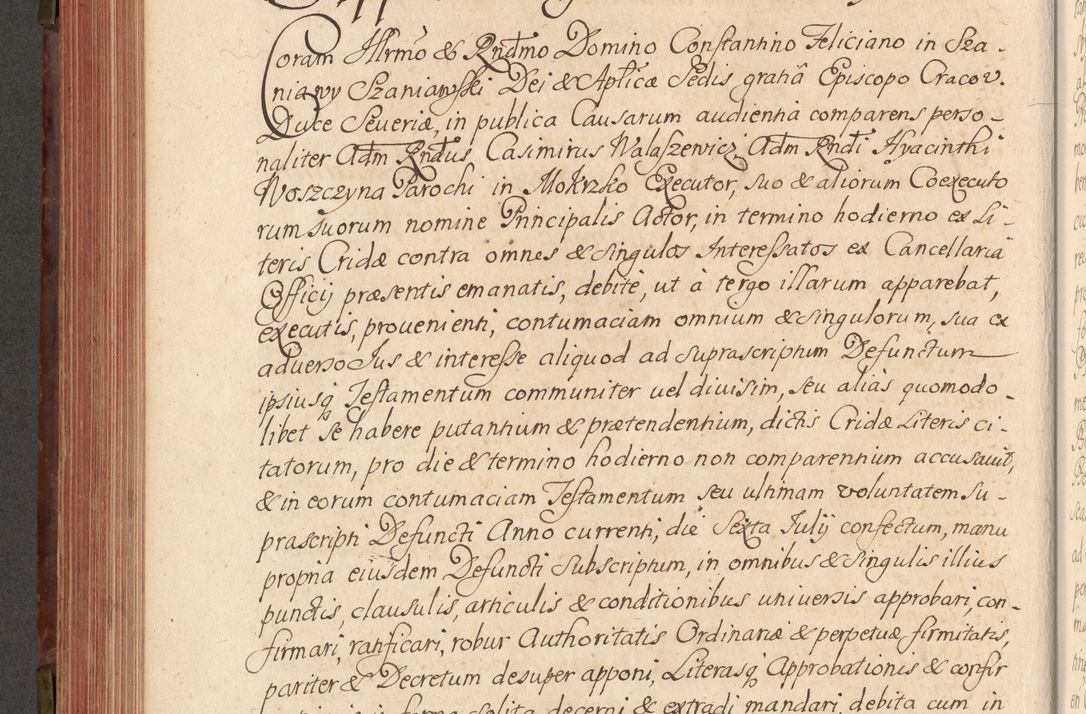 Coram Illrmo & Rndmo Domino Constantino Feliciano in Sza-
niawy Szaniawski Dei & Aplicæ Sedis gratiâ Episcopo Cracov.
Duce Severiæ, in publica Causarum audientia comparens perso-
naliter Adm Rndus Casimirus Walaszewicz Adm Rndi Hyacinthi
Woszczyna Parochi in Mokrzko Executor, suo & aliorum Coexecuto
rum suorum nomine Principalis Actor, in termino hodierno ex Li-
teris Cridæ contra omnes & singulos Interessatos ex Cancellaria
Officij præsentis emanatis, debitè, ut à tergo illarum apparebat,
executis, provenienti, contumaciam omnium & singulorum, sua ex
adverso Jus & interesse aliquod ad suprascriptum Defunctum
ipsiusq Testamentum communiter vel divisim, seu aliàs quomodo-
libet se habere putantium & prætendentium, dictis Cridæ Literis ci-
tatorum, pro die & termino hodierno non comparentium accusavit,
& in eorum contumaciam Testamentum seu ultimam voluntatem su-
prascripti Defuncti Anno currenti, die Sexta Julij confectum, manu
propria eiusdem Defuncti subscriptum, in omnibus & singulis illius
punctis, clausulis, articulis & conditionibus universis approbari, con-
firmari, ratificari, robur Authoritatis Ordinariæ & perpetuæ firmitatis,
pariter & Decretum desuper apponi, Literasq Approbationis & confir
forma solita decerni & extradi mandari, debita cum in